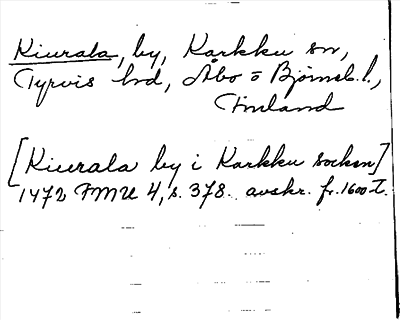 Kiurala, by, Karkku sn,
Tyrvis hd, Åbo o Björneb. l.,
Finland
[Kiurala by i Karkku socken]
1472 FMU 4, s. 378. avskr. fr. 1600-t.